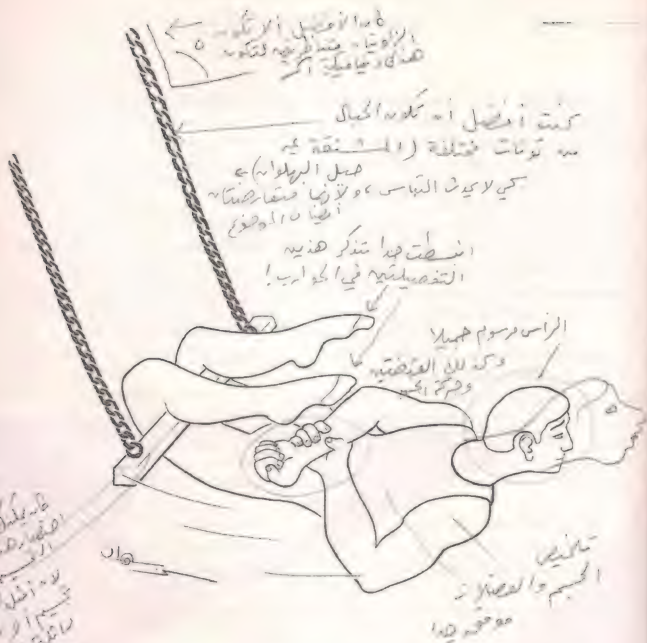 كان الأفضل ألا تكون
الزاويتان متناظرتين لتكون
هناك ديناميكية أكثر
كنت أفضل أن تكون الحبال
من نوعيات مختلفة (المشنقة عن
حبل البهلوان)
كي لا يحدث التباس، ولأنهما متعارضتان
أيضا بالموضوع
انبسطت جدا بتذكر هذين
التفصيلتين في الجوارب!
الرأس مرسوم جميلا
وكذلك القبضتين
وحركة
تلخيص
الجسم والعضلات
موفق جدا
كان يمكن